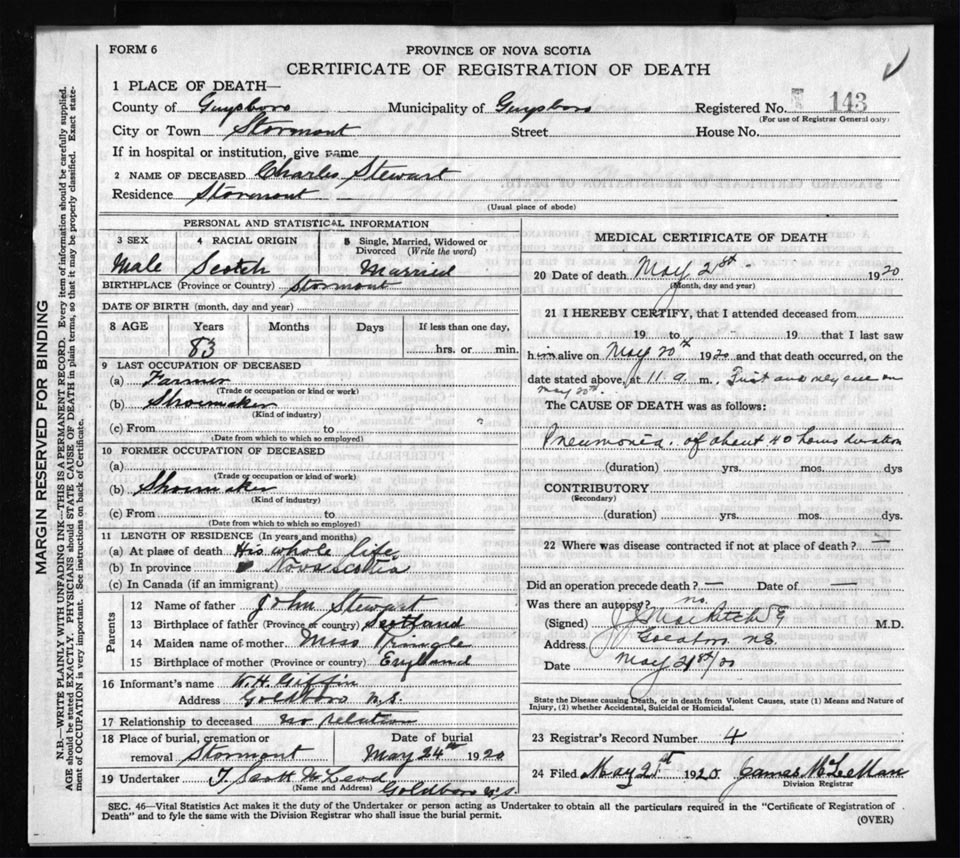 FORM 6
PROVINCE OF NOVA SCOTIA
CERTIFICATE OF REGISTRATION OF DEATH
1 PLACE OF DEATH—
County of Guysboro Municipality of Guysboro Registered No. 143
(For use of Registrar General only)
City or Town Stormont Street House No.
If in hospital or institution, give name
2 NAME OF DECEASED Charles Stewart
Residence Stormont
(Usual place of abode)
PERSONAL AND STATISTICAL INFORMATION
3 SEX 4 RACIAL ORIGIN 5 Single, Married, Widowed or Divorced (Write the word)
Male Scotch Married
BIRTHPLACE (Province or Country) Stormont
DATE OF BIRTH (month, day and year)
8 AGE Years Months Days If less than one day,
83 hrs. or min.
9 LAST OCCUPATION OF DECEASED
(a) Farmer
(Trade or occupation or kind or work)
(b) Shoemaker
(Kind of industry)
(c) From to
(Date from which to which so employed)
10 FORMER OCCUPATION OF DECEASED
(a)
(Trade or occupation or kind of work)
(b) Shoemaker
(Kind of industry)
(c) From to
(Date from which to which so employed)
11 LENGTH OF RESIDENCE (In years and months)
(a) At place of death His whole life
(b) In province Nova Scotia
(c) In Canada (if an immigrant)
Parents
12 Name of father John Stewart
13 Birthplace of father (Province or country) Scotland
14 Maiden name of mother Miss Pringle
15 Birthplace of mother (Province or country) England
16 Informant's name W. H. Giffin
Address Goldboro N.S.
17 Relationship to deceased no relation
18 Place of burial, cremation or removal Stormont Date of burial May 24th 1920
19 Undertaker T. Scott McLeod
(Name and Address) Goldboro N.S.
MEDICAL CERTIFICATE OF DEATH
20 Date of death May 21st 1920
(Month, day and year)
21 I HEREBY CERTIFY, that I attended deceased from
19 to 19 that I last saw
him alive on May 20th 1920 and that death occurred, on the
date stated above, at 11 a m. First and only call on
May 20th.
The CAUSE OF DEATH was as follows:
Pneumonia of about 40 hours duration
(duration) yrs. mos. dys
CONTRIBUTORY
(Secondary)
(duration) yrs. mos. dys.
22 Where was disease contracted if not at place of death? —
Did an operation precede death? — Date of —
Was there an autopsy? no
(Signed) M.D.
Address N.S.
Date May 21st/20
State the Disease causing Death, or in death from Violent Causes, state (1) Means and Nature of
Injury, (2) whether Accidental, Suicidal or Homicidal.
23 Registrar's Record Number 4
24 Filed May 21st 1920 James McLellan
Division Registrar
SEC. 46—Vital Statistics Act makes it the duty of the Undertaker or person acting as Undertaker to obtain all the particulars required in the "Certificate of Registration of
Death" and to fyle the same with the Division Registrar who shall issue the burial permit.
(OVER)
MARGIN RESERVED FOR BINDING
N.B.—WRITE PLAINLY WITH UNFADING INK—THIS IS A PERMANENT RECORD. Every item of information should be carefully supplied.
AGE should be stated EXACTLY. PHYSICIANS should STATE CAUSE OF DEATH in plain terms, so that it may be properly classified. Exact state-
ment of OCCUPATION is very important. See instructions on back of Certificate.